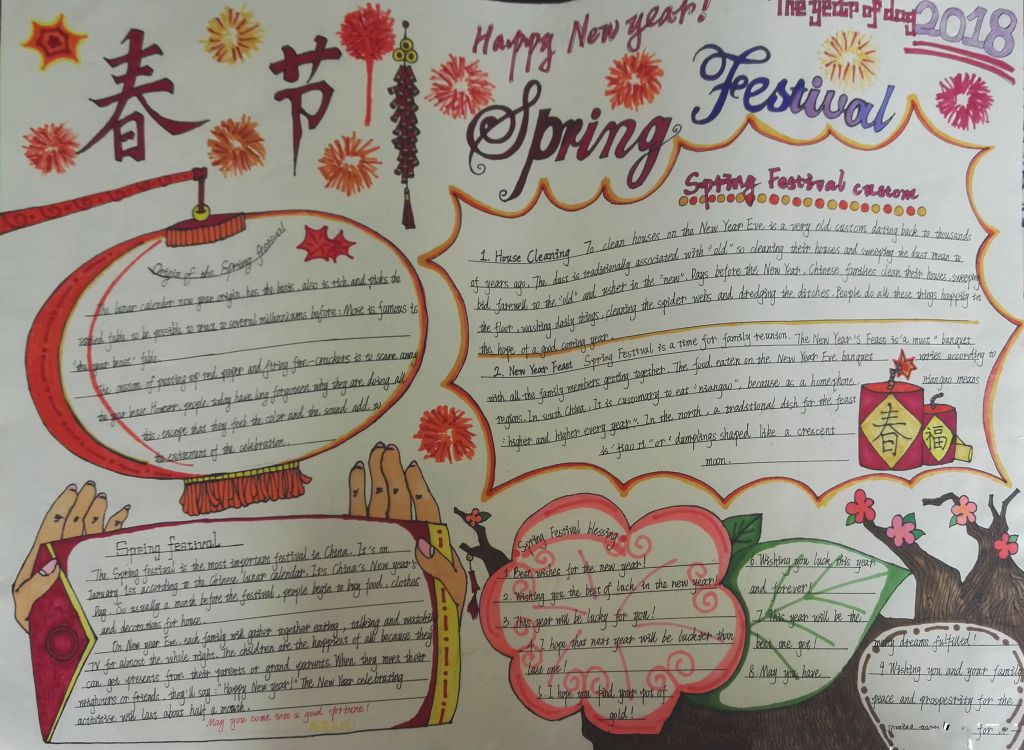 春节
Happy New year!
The year of dog 2018
Spring Festival
Origin of the Spring festival
The lunar calender now year origin, has the hosts, also is rich and picks the
varied fable to be possible to trace to several millenniums before: Most is famous is
"the year beast" fable.
The custom of putting up red paper and firing fire-crackers is to scare away
the year beast. However, people today have long forgotten why they are doing all
this, except that they feel the color and the sound add to
the excitement of the celebration.
Spring Festival custom
1. House Cleaning To clean houses on the New Year Eve is a very old custom dating back to thousands
of years ago. The dust is traditionally associated with "old" so cleaning their houses and sweeping the dust mean to
bid farewell to the "old" and usher in the "new". Days before the New Year, Chinese families clean their houses, sweeping
the floor, washing daily things, cleaning the spider webs and dredging the ditches. People do all these things happily in
the hope of a good coming year.
2. New Year Feast Spring Festival is a time for family reunion. The New Year's Feast is a must" banquet
with all the family members getting together. The food eaten on the New Year Eve banquet varies according to
regions. In south China, It is customary to eat "niangao", because as a homophone, niangao means
"higher and higher every year". In the north, a traditional dish for the feast
is "Jiao zi" or "dumplings shaped like a crescent
moon.
春
福
Spring festival
The Spring festival is the most important festival in China. It's on
January 1st according to the Chinese lunar calendar. It's China's New year's
Day. So usually a month before the festival, people begin to buy food, clothes
and decorations for house.
On New year Eve, each family will gather together eating, talking and watching
TV for almost the whole night. The children are the happiest of all because they
can get presents from their parents or grand parents. When they meet their
neighbors or friends, they'll say: "Happy New year!" The New Year celebrating
activities will last about half a month.
May you come into a good fortune!
Spring Festival blessing
1. Best wishes for the new year!
2. Wishing you the best of luck in the new year!
3. This year will be lucky for you!
4. I hope that next year will be luckier than
last one!
5. I hope you find your pot of
gold!
6. Wishing you luck this year
and forever!
7. This year will be the
best one yet!
8. May you have
many dreams fulfilled!
9. Wishing you and your family
peace and prosperity for the
for